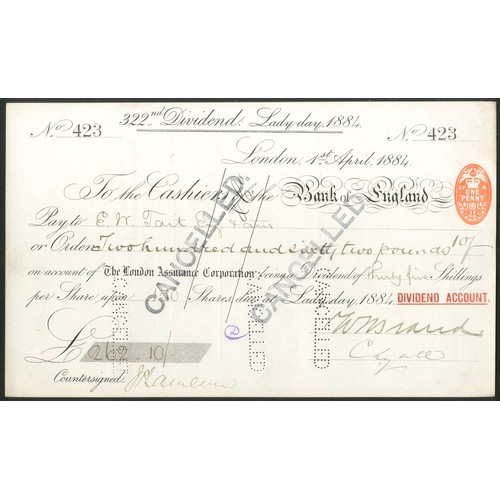 322nd Dividend: Lady-day, 1884.
No. 423
No. 423
London, 1st April, 1884.
ONE PENNY
To the Cashiers of the Bank of England
Pay to E. W. Tait
or Order Two hundred and sixty two pounds 10/-
on account of The London Assurance Corporation, being a Dividend of Thirty five Shillings
per Share upon 150 Shares, due at Lady-day, 1884
DIVIDEND ACCOUNT.
£ 262-10/-
Countersigned,
CANCELLED.
CANCELLED.